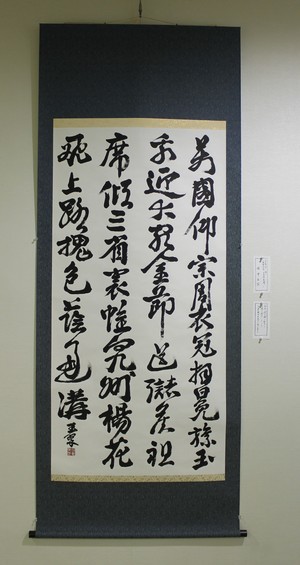 萬國仰宗周衣冠拜冕旒玉
乘迎大客金節送諸侯祖
席傾三省褰帷向九州楊花
飛上路槐色蔭通溝